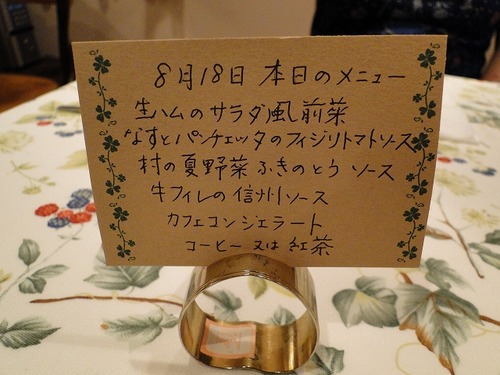 8月18日 本日のメニュー
生ハムのサラダ風前菜
なすとパンチェッタのフィジリトマトソース
村の夏野菜 ふきのとう ソース
牛フィレの信州ソース
カフェコンジェラート
コーヒー 又は 紅茶